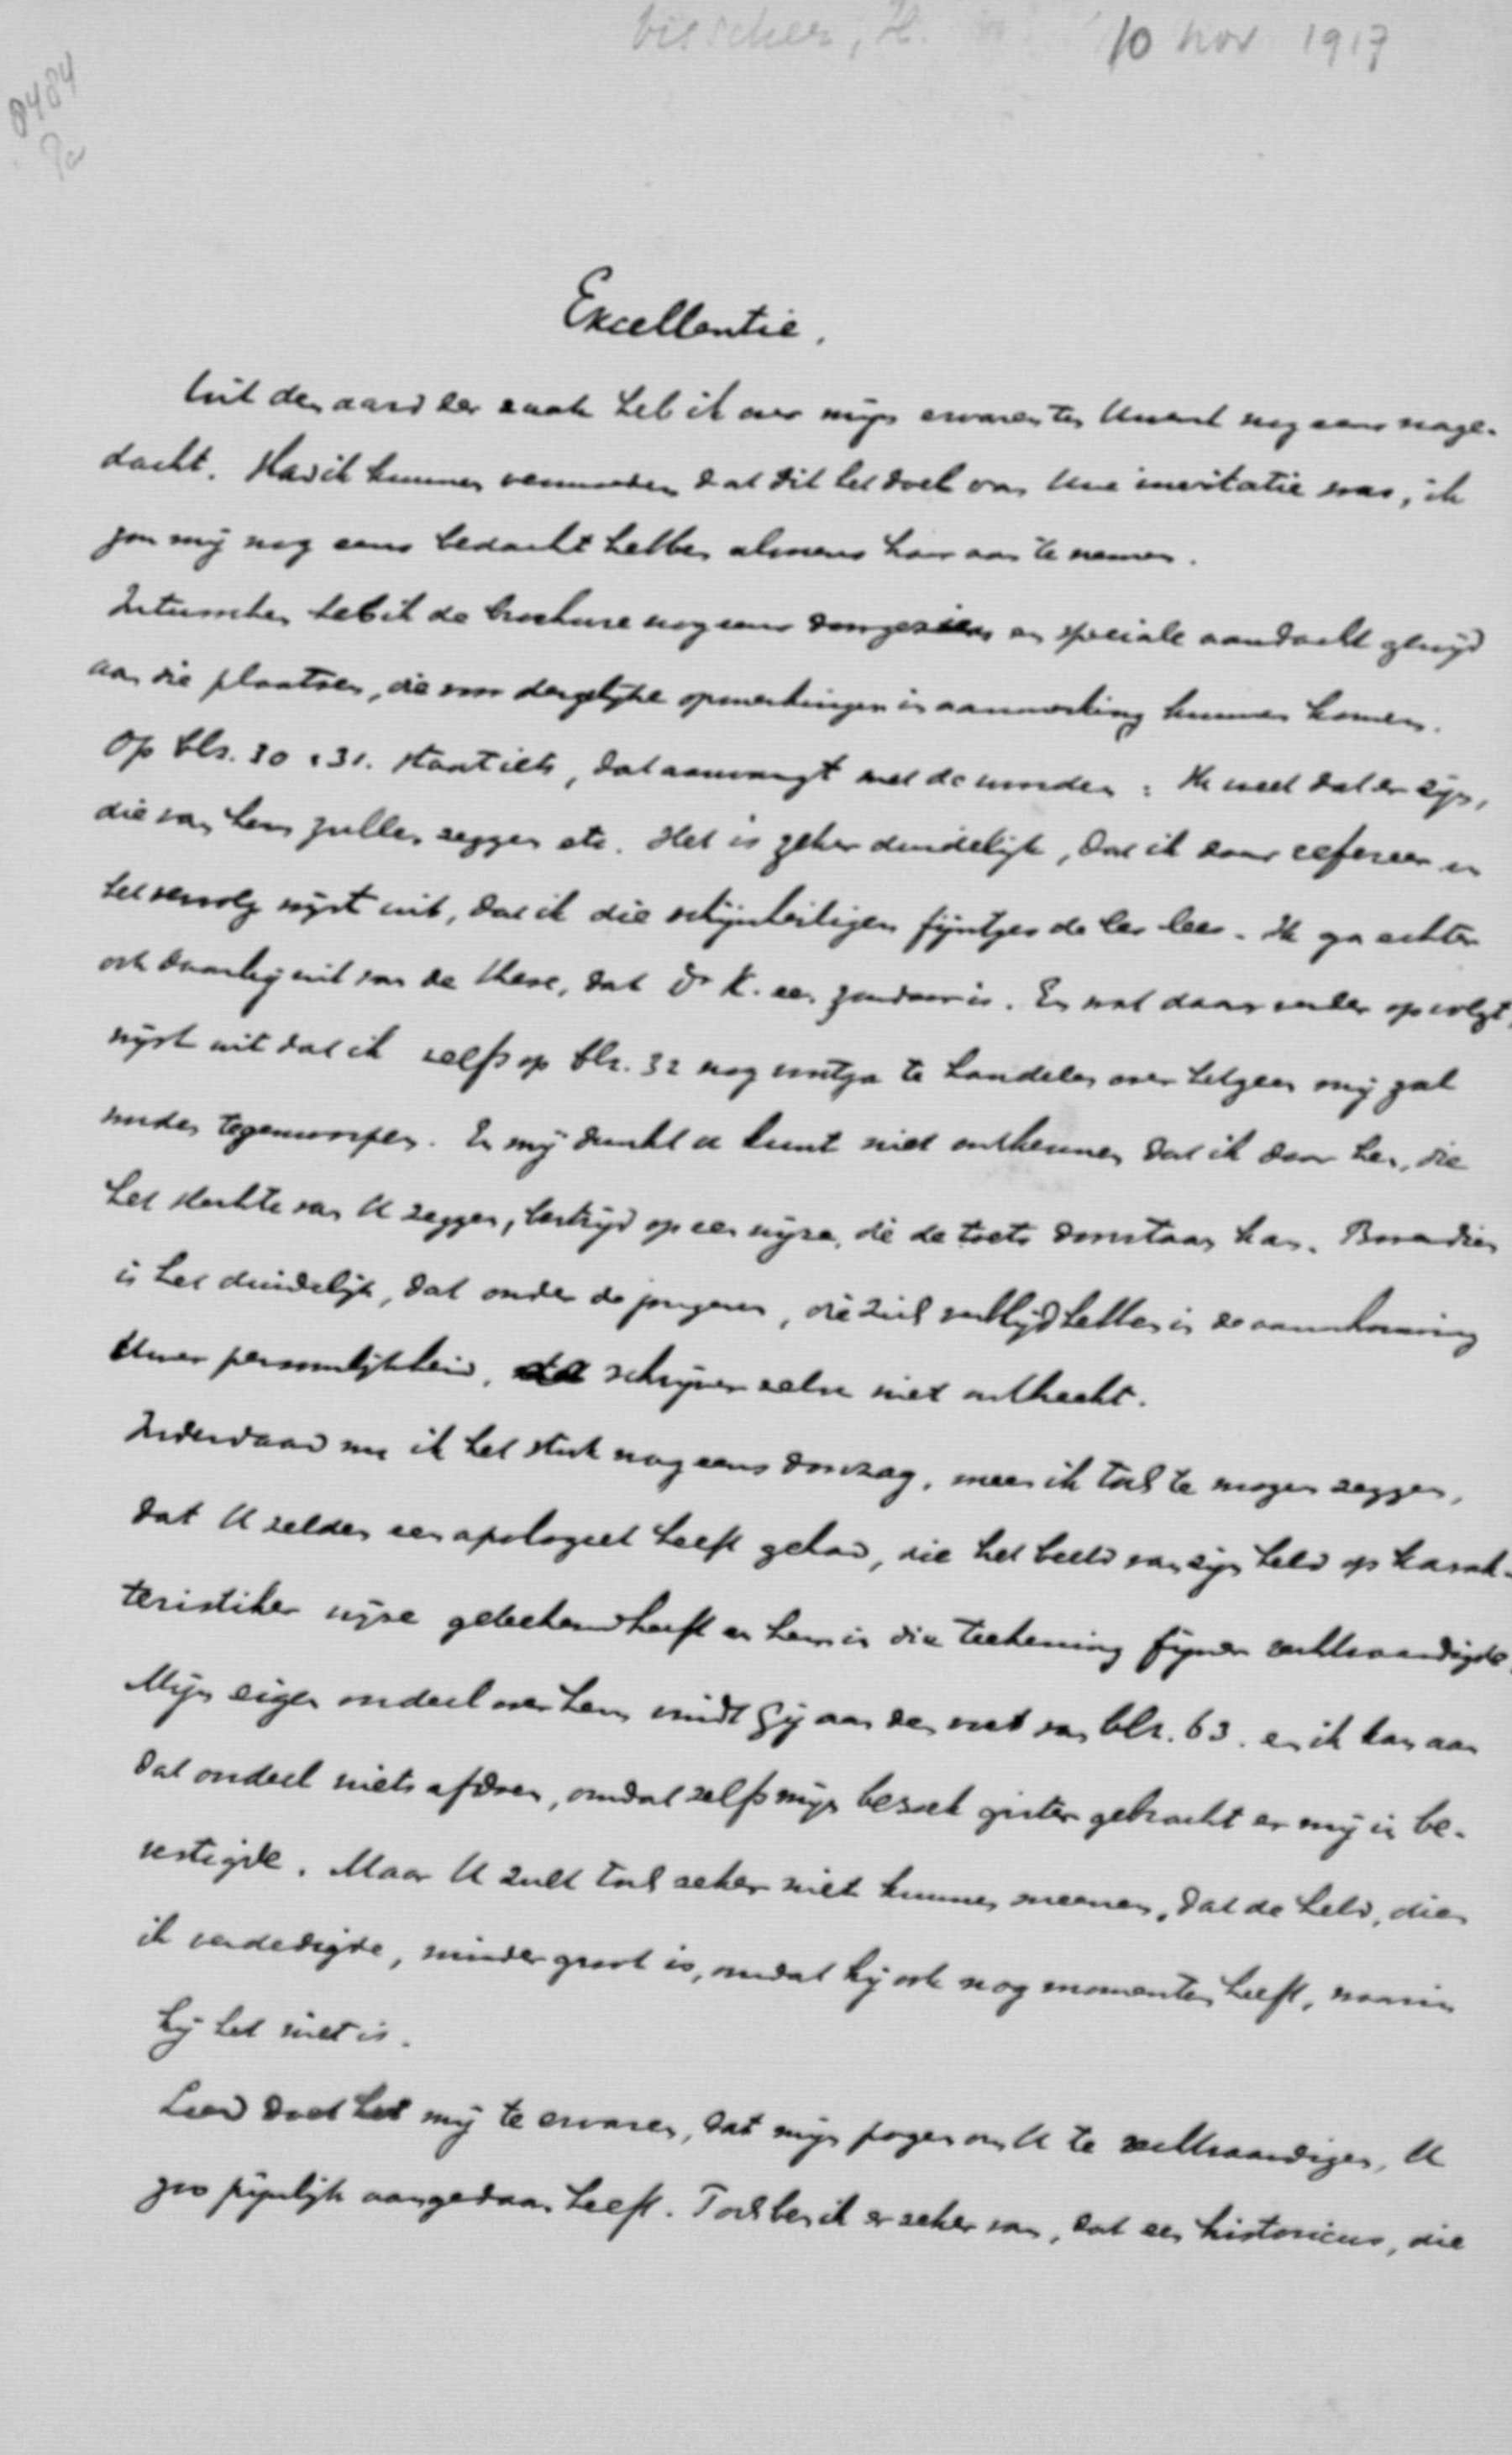 Visscher, H. 10 nov 1917
8484
Excellentie,
Uit den aard der zaak heb ik over mijn ervaren ten Uwent nog eens nage-
dacht. Had ik kunnen vermoeden dat dit het doel van Uwe invitatie was, ik
zou mij nog eens bedacht hebben alvorens haar aan te nemen.
Intusschen heb ik de brochure nog eens doorgezien en speciale aandacht gewijd
aan die plaatsen, die voor dergelijke opmerkingen in aanmerking kunnen komen.
Op blz. 30 & 31. staat iets, dat aanvangt met de woorden: Ik weet dat er zijn,
die van hem zullen zeggen etc. Het is zeker duidelijk, dat ik daar refereer en
het vervolg wijst uit, dat ik die schijnheiligen fijntjes de les lees. Ik ga echter
ook daarbij uit van de these, dat Dr K. een zondaar is. En wat daar verder op volgt,
wijst uit dat ik zelfs op blz. 32 nog voortga te handelen over hetgeen mij zal
worden tegenworpen. En mij dunkt U kunt niet ontkennen dat ik daar hen, die
het slechte van U zeggen, bestrijd op een wijze, die de toets doorstaan kan. Bovendien
is het duidelijk, dat onder de jongeren, die zich verblijd hebben in de aanschouwing
Uwer persoonlijkheid, de schrijver zelve niet ontbreekt.
Inderdaad nu ik het stuk nog eens doorzag, meen ik toch te mogen zeggen,
dat U zelden een apologeet heeft gehad, die het beeld van zijn held op karak-
teristieker wijze geteekend heeft en hem in die teekening fijner rechtvaardigde.
Mijn eigen oordeel over hem vindt Gij aan den voet van blz. 63. en ik kan aan
dat oordeel niets afdoen, omdat zelfs mijn bezoek gister gebracht er mij in be-
vestigde. Maar U zult toch zeker niet kunnen meenen, dat de held, dien
ik verdedigde, minder groot is, omdat hij ook nog momenten heeft, waarin
hij het niet is.
Leed doet het mij te ervaren, dat mijn pogen om U te rechtvaardigen, U
zoo pijnlijk aangedaan heeft. Toch ben ik er zeker van, dat een historicus, die